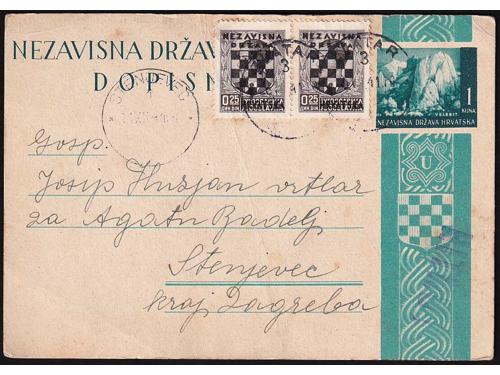 NEZAVISNA DRŽAV
DOPISN
NEZAVISNA
DRŽAVA
HRVATSKA
0.25
NEZAVISNA
DRŽAVA
HRVATSKA
0.25
VELEBIT
1
KUNA
NEZAVISNA DRŽAVA HRVATSKA
U
STENJEVEC
Gosp.
Josip Huzjan vrtlar
za Agatu Badelj
Stenjevec
kraj Zagreba